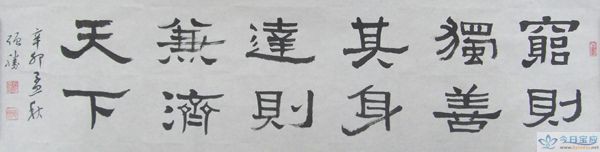 窮則
獨善
其身
達則
兼濟
天下
辛卯孟秋
今日宝应